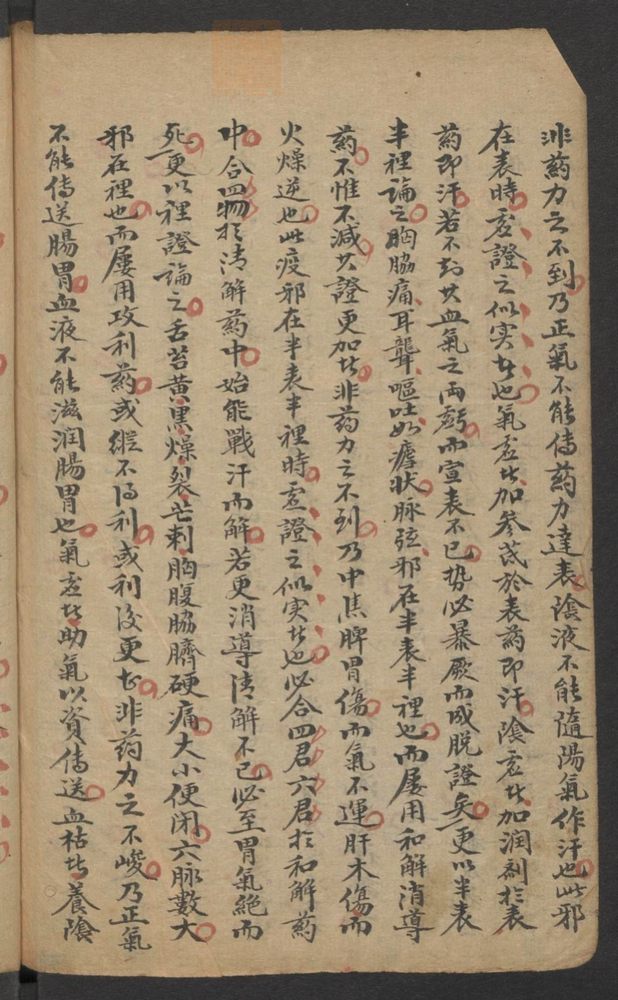 非药力之不到乃正氣不能傳药力達表陰液不能隨陽氣作汗也此邪
在表時虛證之似实者也氣虛者加參芪於表药即汗陰虛者加润剂於表
药即汗若不知其血氣之両虧而宣表不已势必暴厥而成脱證矣更以半表
半裡論之胸脇痛耳聾嘔吐如瘧状脉弦邪在半表半裡也而屡用和解消導
药不惟不減其證更加者非药力之不到乃中焦脾胃傷而氣不運肝木傷而
火燥逆也此疫邪在半表半裡時虛證之似实者也必合四君六君於和解药
中合四物於清解药中始能戰汗而解若更消導清解不已必至胃氣絶而
死更以裡證論之舌苔黄黒燥裂芒刺胸腹脇臍硬痛大小便闭六脉數大
邪在裡也而屡用攻利药或總不得利或利後更甚非药力之不峻乃正氣
不能傳送腸胃血液不能滋润腸胃也氣虛者助氣以資傳送血枯者養陰